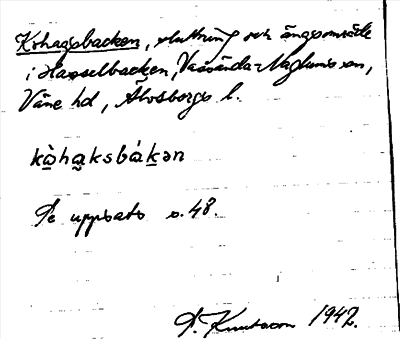 Kohagsbacken, sluttning och ängsområde
i Hasselbacken, Vassända-Naglums sn,
Väne hd, Älvsborgs l.
kòhaksbákən
Se uppsats s. 48.
S. Knutsson 1942.